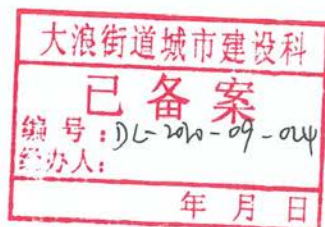 大浪街道城市建设科
已备案
编号：DL-2020-09-024
经办人：
年 月 日